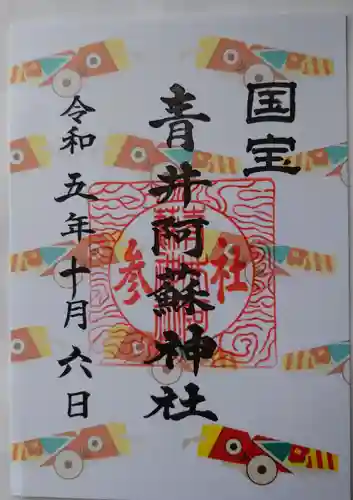 国宝
青井阿蘇神社
令和五年十月六日
参社